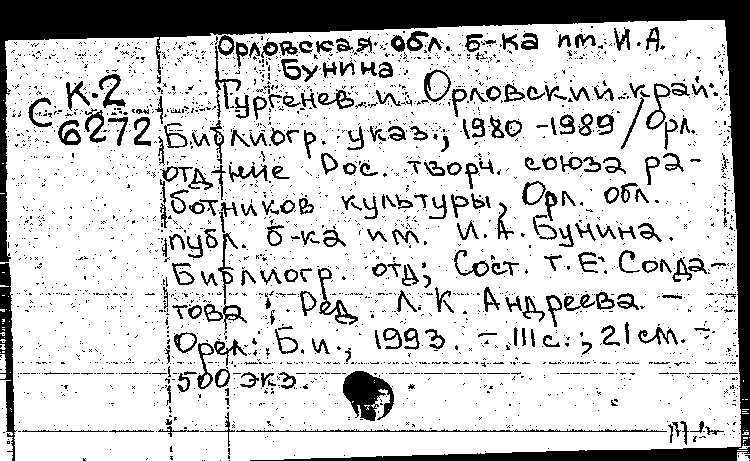 Орловская обл. б-ка им. И.А.
Бунина
С К-2
6272
Тургенев и Орловский край:
Библиогр. указ., 1980-1989 / Орл.
отд-ние Рос. творч. союза ра-
ботников культуры, Орл. обл.
публ. б-ка им. И.А. Бунина.
Библиогр. отд; Сост. Т.Е. Солда-
това ; Ред. Л.К. Андреева. —
Орел: Б.и., 1993. - 111 с.; 21 см. -
500 экз.